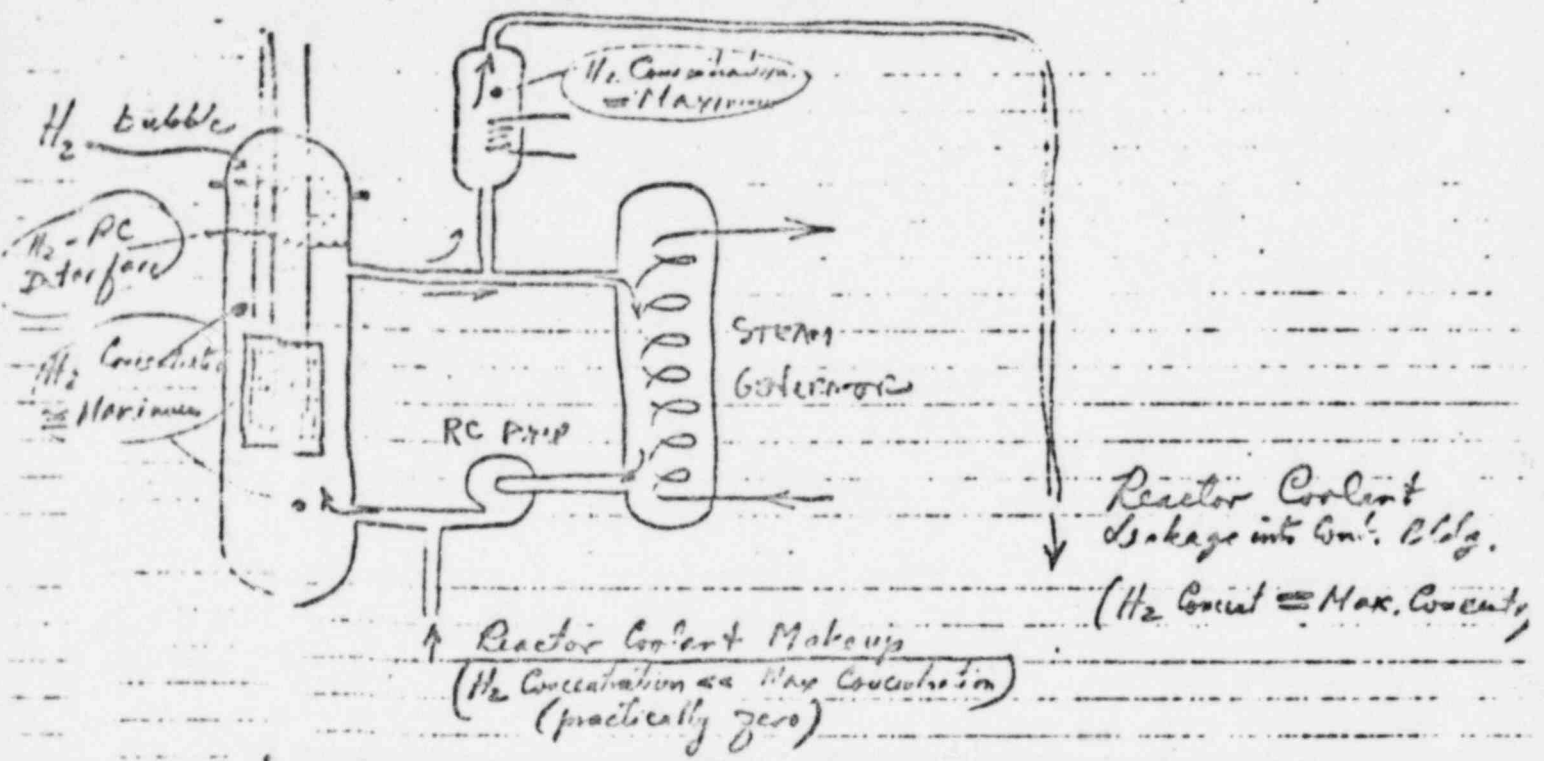 H2 Concentration
= Maximum
H2 bubble
H2 - RC
Interface
H2 Concentration
≅ Maximum
STEAM
GENERATOR
RC PUMP
Reactor Coolant
Leakage into Cont. Bldg.
(H2 Concent = Max. Concent)
Reactor Coolant Makeup
(H2 Concentration << Max Concentration)
(practically zero)